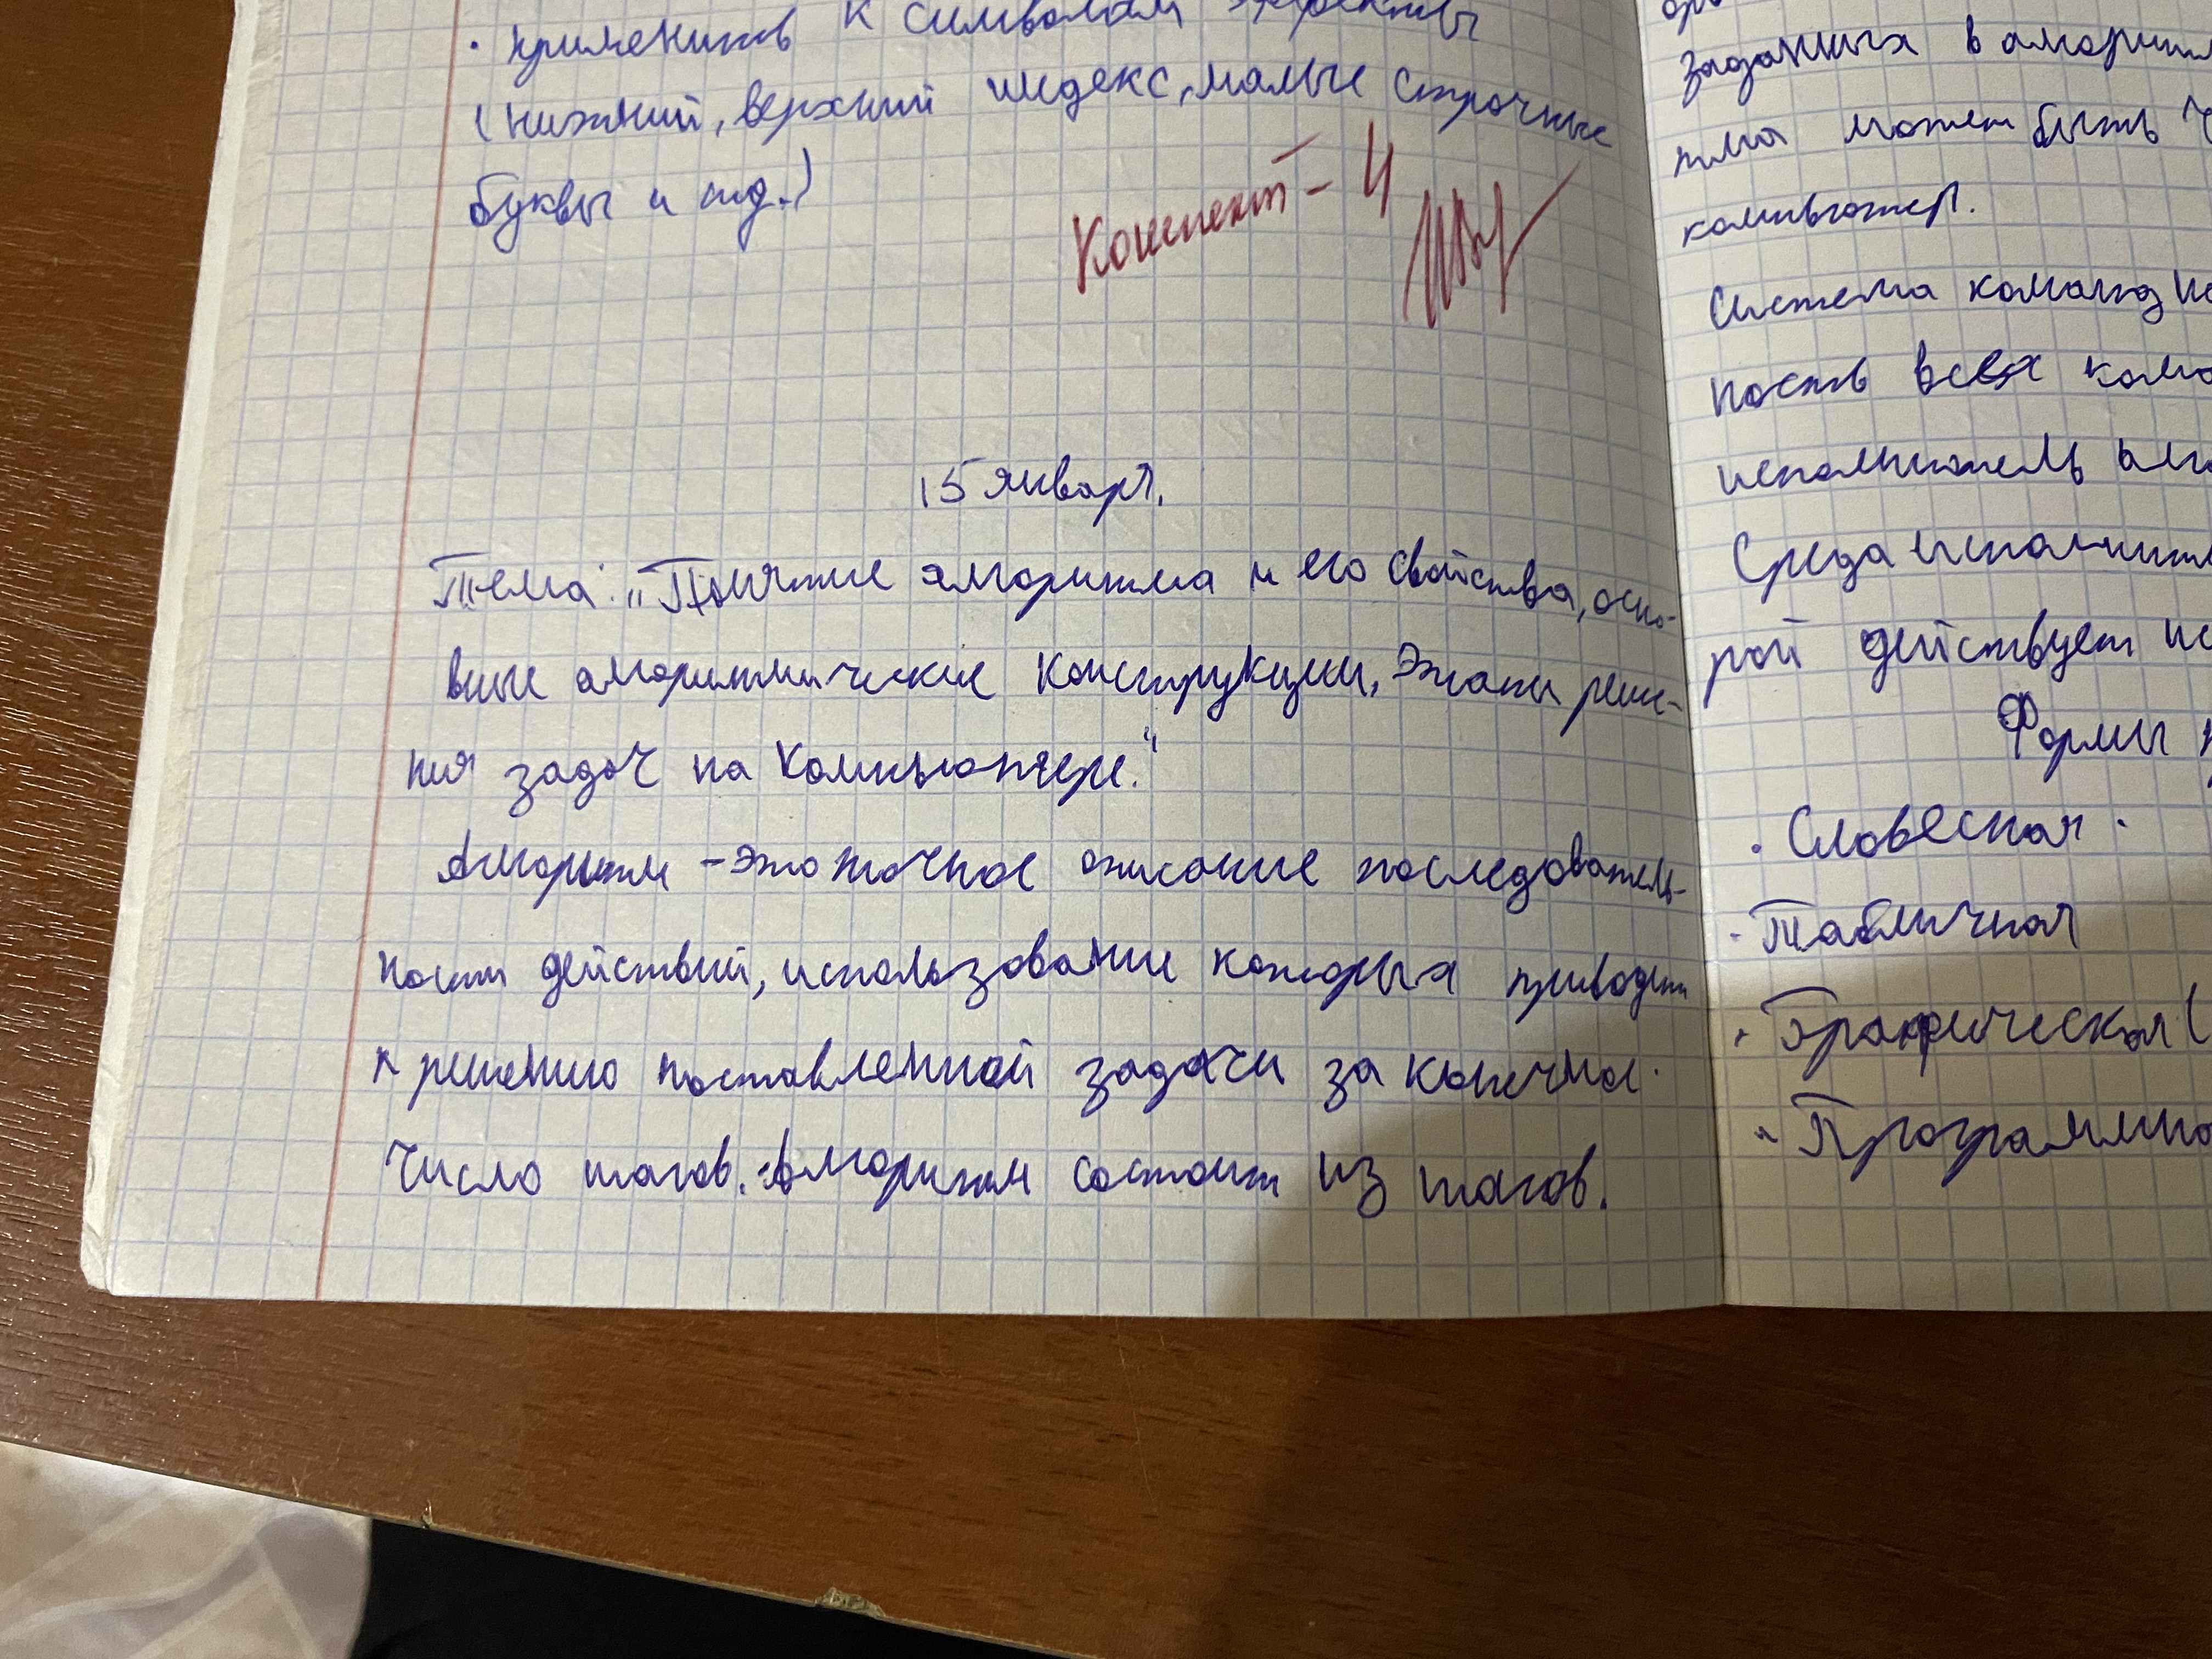 · применить к символам эффекты
(нижний, верхний индекс, малые строчные
буквы и т.д.)
Конспект - 4
15 января.
Тема: „Понятие алгоритма и его свойства, осно-
вные алгоритмические конструкции, этапы реше-
ния задач на компьютере."
Алгоритм - это точное описание последователь-
ности действий, использование которых приводит
к решению поставленной задачи за конечное
число шагов. Алгоритм состоит из шагов.
заданных в алгоритм
тма может быть ч
компьютер.
Система команд ис
ность всех кома
исполнитель алг
Среда исполнит
рой действует ис
Формы п
· Словесная.
· Табличная
· Графическая (
· Программно